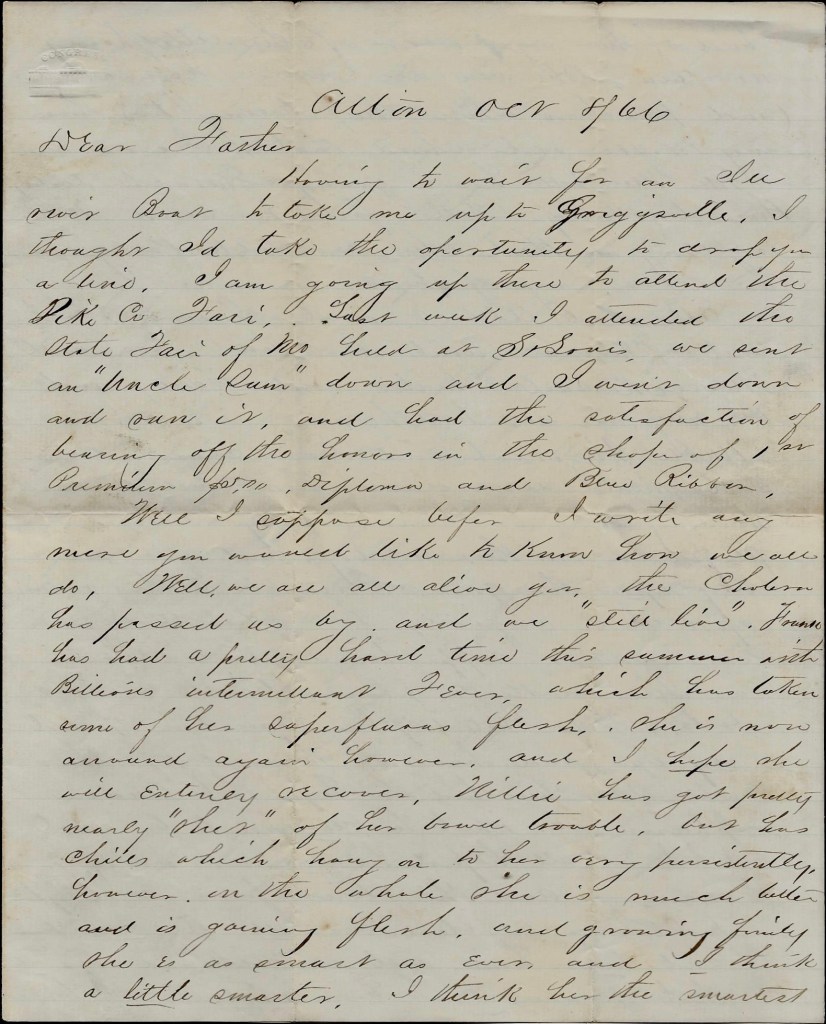 Alton Oct 8/66
Dear Father
Having to wait for an Ill
river Boat to take me up to Griggsville, I
thought Id take the opertunity to drop you
a line. I am going up there to attend the
Pike Co Fair, . Last week I attended the
State Fair of Mo held at St Louis, we sent
an "Uncle Sam" down and I went down
and run it, and had the satisfaction of
bearing off the honors in the shape of 1st
Premium , Diploma and Blue Ribbon,
Well I suppose before I write any
more you would like to know how we all
do, Well, we are all alive yet, the Cholera
has passed us by, and we "still live". Frank
has had a pretty hard time this summer with
Billious intermittant Fever, which has taken
some of her superfluous flesh, . she is now
around again however, and I hope she
will entirely recover, Nillie has got pretty
nearly "shet" of her bowel trouble, but has
chills which hang on to her very persistently,
however, on the whole she is much better
and is gaining flesh, and growing finely
she is as smart as ever, and I think
a little smarter, I think her the smartest